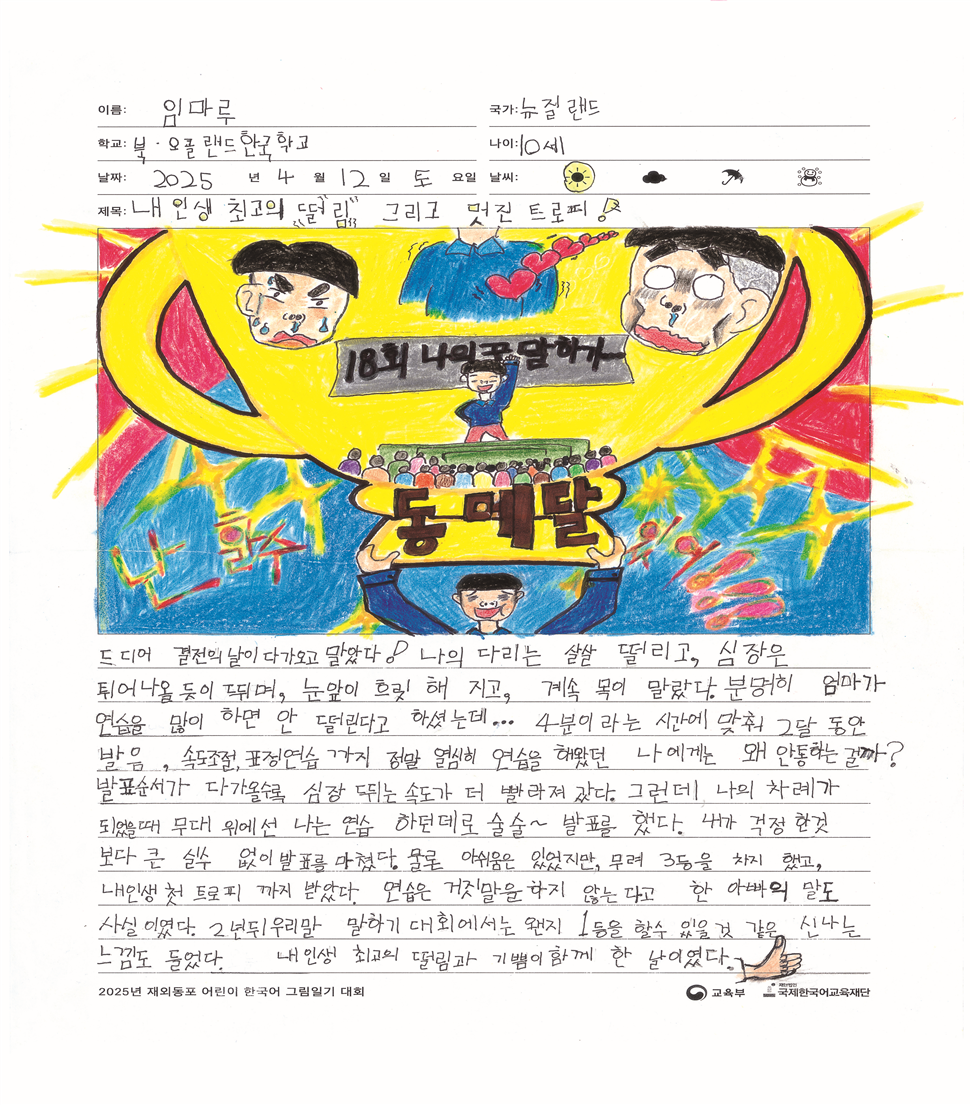 이름: 임마루
국가: 뉴질랜드
학교: 북·오클랜드한국학교
나이: 10세
날짜: 2025 년 4 월 12 일 토 요일 날씨:
제목: 내 인생 최고의 떨림 그리고 멋진 트로피!
18회 나의 꿈 말하기
동메달
난 할수 있어!!!
드디어 결전의 날이 다가오고 말았다! 나의 다리는 살살 떨리고, 심장은
튀어나올 듯이 뛰며, 눈앞이 흐릿 해 지고, 계속 목이 말랐다. 분명히 엄마가
연습을 많이 하면 안 떨린다고 하셨는데... 4분이라는 시간에 맞춰 2달 동안
발음, 속도조절, 표정연습 까지 정말 열심히 연습을 해왔던 나에게는 왜 안통하는 걸까?
발표순서가 다가올수록 심장 뛰는 속도가 더 빨라져 갔다. 그런데 나의 차례가
되었을때 무대 위에선 나는 연습 하던데로 술술~ 발표를 했다. 내가 걱정 한것
보다 큰 실수 없이 발표를 마쳤다. 물론 아쉬움은 있었지만, 무려 3등을 차지 했고,
내인생 첫 트로피 까지 받았다. 연습은 거짓말을 하지 않는 다고 한 아빠의 말도
사실 이였다. 2년뒤 우리말 말하기 대회에서는 왠지 1등을 할수 있을 것 같은 신나는
느낌도 들었다. 내 인생 최고의 떨림과 기쁨이 함께 한 날이였다.
2025년 재외동포 어린이 한국어 그림일기 대회
교육부
재단법인
국제한국어교육재단